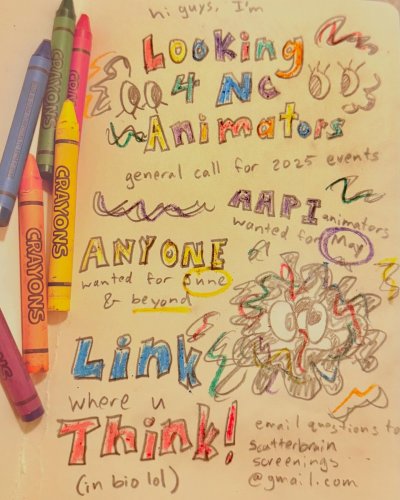 hi guys, I'm
Looking
4 NC
Animators
general call for 2025 events
AAPI animators
wanted for May
ANYONE
wanted for June
& beyond
Link
where u
Think!
(in bio lol)
email questions to
scatterbrain
screenings
@gmail.com
CRAYONS
CRAYONS
CRAYONS
CRAYONS
CRAYONS